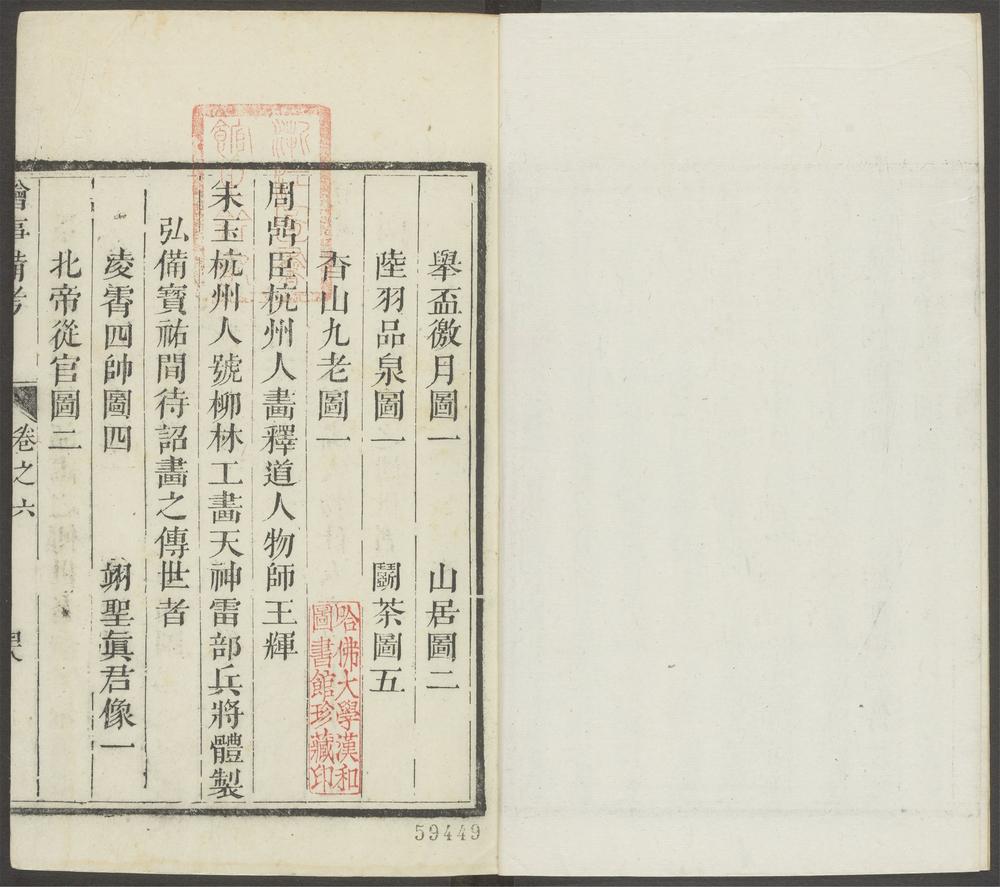 舉盃徼月圖一　山居圖二
陸羽品泉圖一　鬬茶圖五
香山九老圖一
周鼎臣杭州人畫釋道人物師王輝
朱玉杭州人號柳林工畫天神雷部兵將體製
弘備寶祐間待詔畫之傳世者
凌霄四帥圖四　翊聖眞君像一
北帝從官圖二
繪事備考
卷之六
哈佛大學漢和
圖書館珍藏印
59449